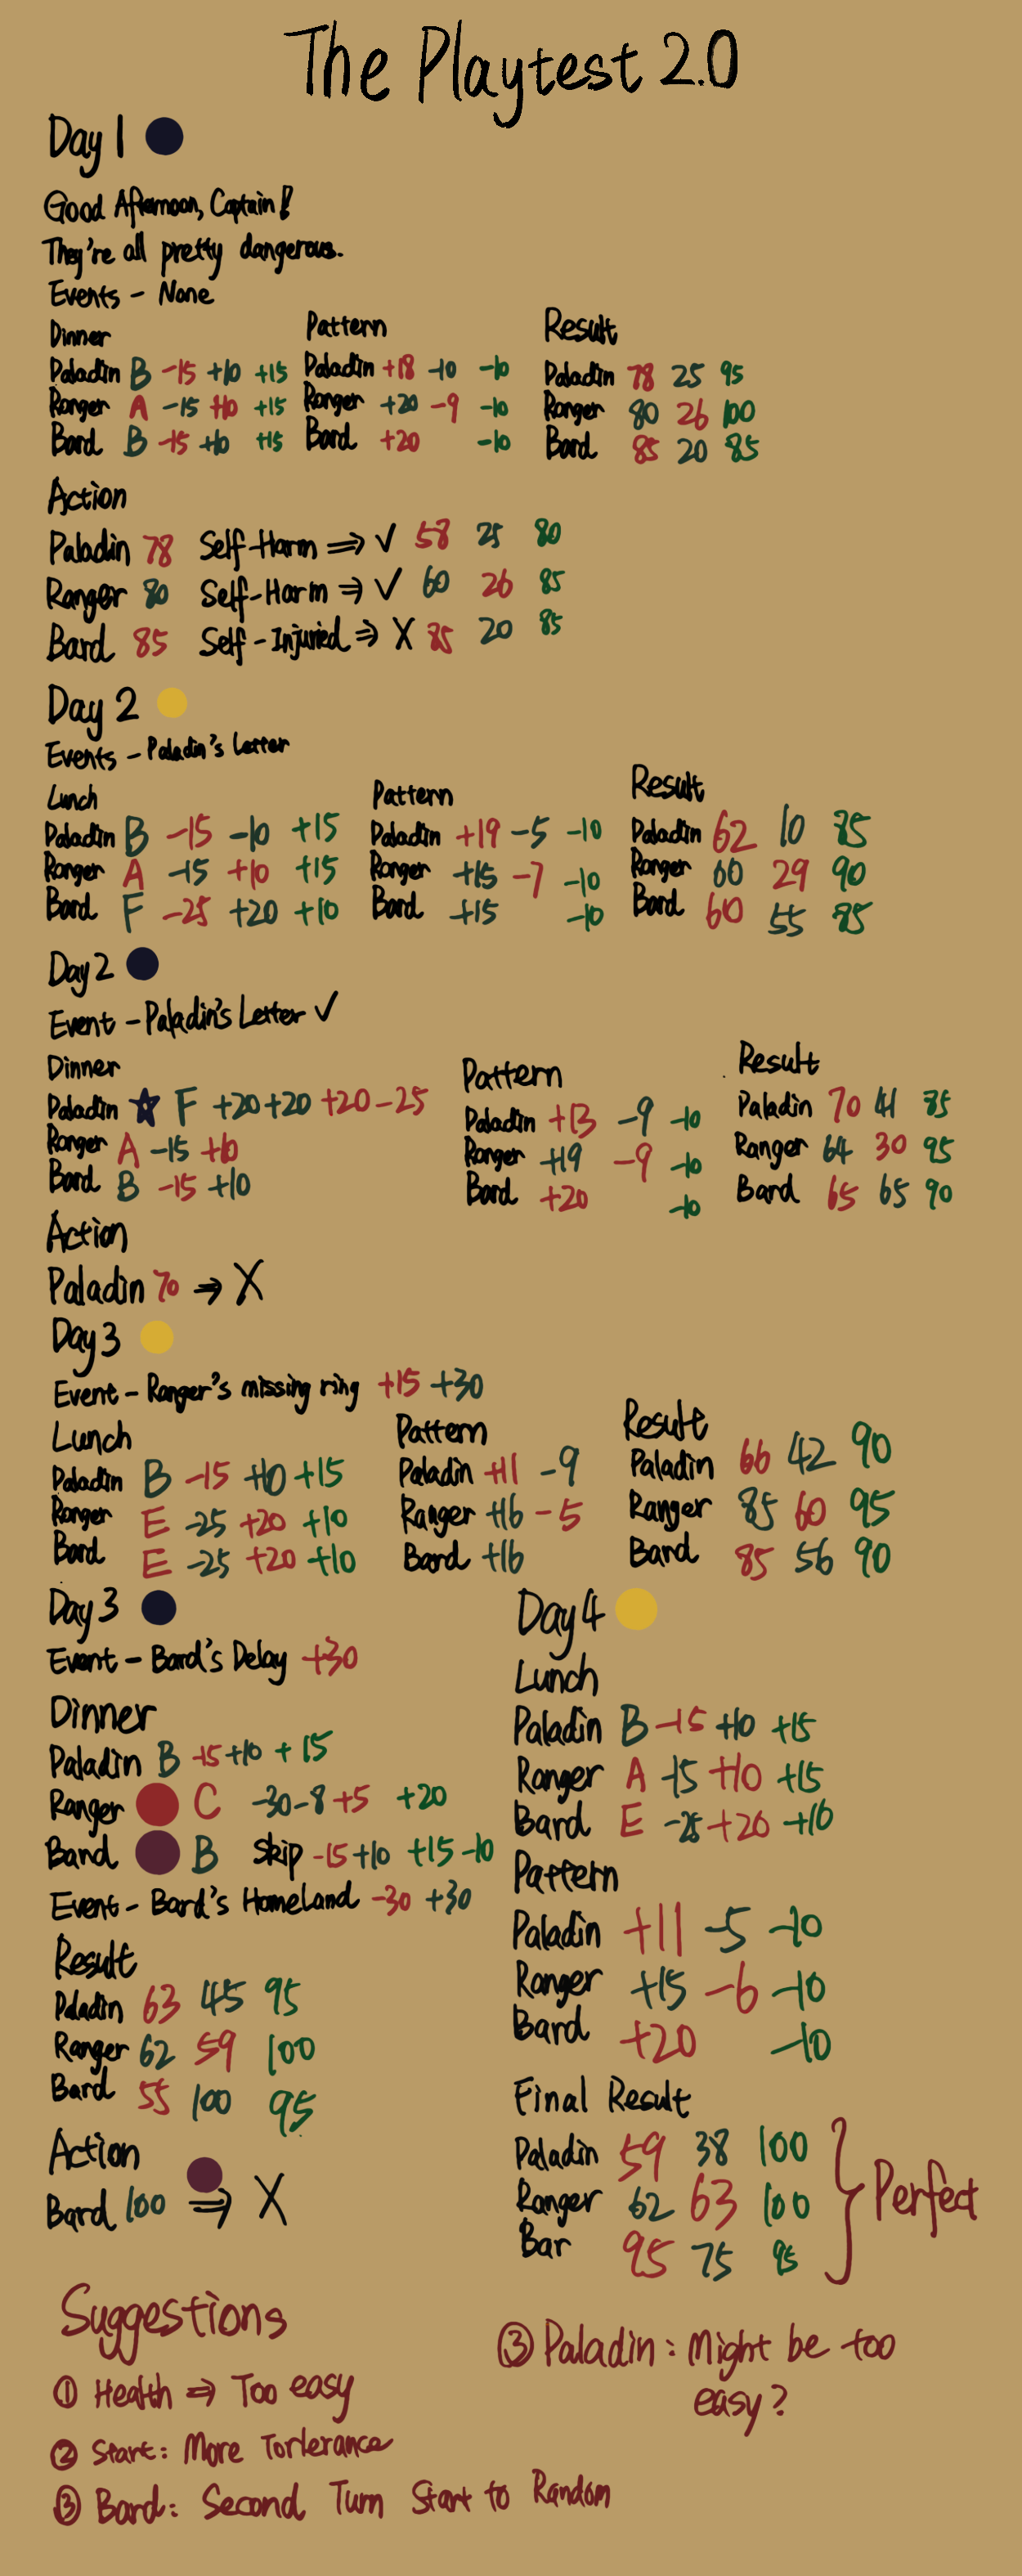 The Playtest 2.0
Day 1
Good Afternoon, Captain!
They're all pretty dangerous.
Events - None
Dinner
Paladin B -15 +10 +15
Ranger A -15 +10 +15
Bard B -15 +10 +15
Pattern
Paladin +18 -10 -10
Ranger +20 -9 -10
Bard +20 -10
Result
Paladin 78 25 95
Ranger 80 26 100
Bard 85 20 85
Action
Paladin 78 Self-Harm ⇒ ✓ 58 25 80
Ranger 80 Self-Harm ⇒ ✓ 60 26 85
Bard 85 Self-Injuried ⇒ X 85 20 85
Day 2
Events - Paladin's Letter
Lunch
Paladin B -15 -10 +15
Ranger A -15 +10 +15
Bard F -25 +20 +10
Pattern
Paladin +19 -5 -10
Ranger +15 -7 -10
Bard +15 -10
Result
Paladin 62 10 85
Ranger 60 29 90
Bard 60 55 85
Day 2
Event - Paladin's Letter ✓
Dinner
Paladin ☆ F +20 +20 +20 -25
Ranger A -15 +10
Bard B -15 +10
Pattern
Paladin +13 -9 -10
Ranger +19 -9 -10
Bard +20 -10
Result
Paladin 70 41 85
Ranger 64 30 95
Bard 65 65 90
Action
Paladin 70 ⇒ X
Day 3
Event - Ranger's missing ring +15 +30
Lunch
Paladin B -15 +10 +15
Ranger E -25 +20 +10
Bard E -25 +20 +10
Pattern
Paladin +11 -9
Ranger +16 -5
Bard +16
Result
Paladin 66 42 90
Ranger 85 60 95
Bard 85 56 90
Day 3
Event - Bard's Delay +30
Dinner
Paladin B -15 +10 +15
Ranger C -30 -8 +5 +20
Bard B Skip -15 +10 +15 -10
Event - Bard's Homeland -30 +30
Result
Paladin 63 45 95
Ranger 62 59 100
Bard 55 100 95
Action
Bard 100 ⇒ X
Day 4
Lunch
Paladin B -15 +10 +15
Ranger A -15 +10 +15
Bard E -25 +20 +10
Pattern
Paladin +11 -5 -10
Ranger +15 -6 -10
Bard +20 -10
Final Result
Paladin 59 38 100
Ranger 62 63 100
Bar 95 75 95
Perfect
Suggestions
① Health ⇒ Too easy
② Start: More Torlerance
③ Bard: Second Turn Start to Random
③ Paladin: Might be too
easy?